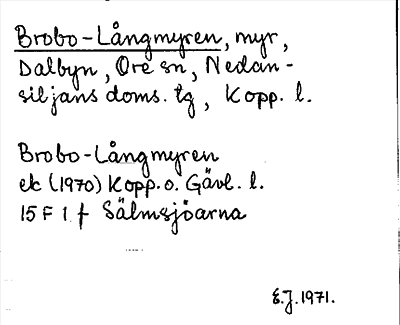 Brobo-Långmyren, myr,
Dalbyn, Ore sn, Nedan-
siljans doms. tg, Kopp. l.
Brobo-Långmyren
ek (1970) Kopp. o. Gävl. l.
15 F 1 f Sälmsjöarna
E.J. 1971.